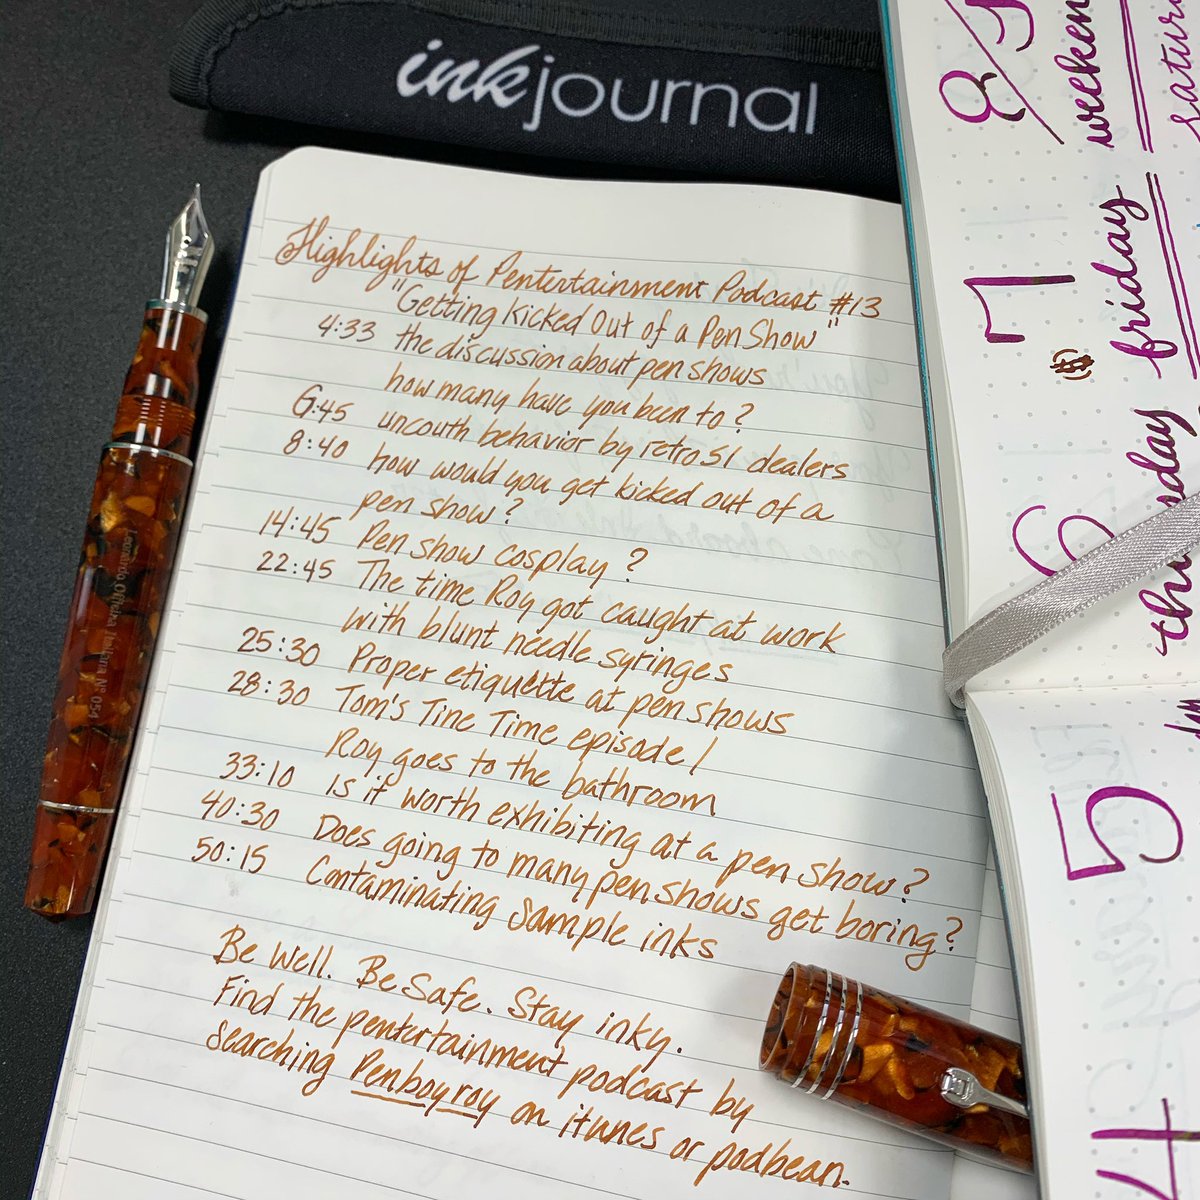 inkjournal
Highlights of Pentertainment Podcast #13
"Getting Kicked Out of a Pen Show"
4:33 the discussion about pen shows
how many have you been to?
6:45 uncouth behavior by retro51 dealers
8:40 how would you get kicked out of a
pen show?
14:45 Pen show cosplay?
22:45 The time Roy got caught at work
with blunt needle syringes
25:30 Proper etiquette at pen shows
28:30 Tom's Tine Time episode/
Roy goes to the bathroom
33:10 Is it worth exhibiting at a pen show?
40:30 Does going to many pen shows get boring?
50:15 Contaminating sample inks
Be Well. Be Safe. Stay inky.
Find the pentertainment podcast by
searching Penboyroy on itunes or podbean.
Leonardo Officina Italiana N° 054
weekend
7 friday
6
5
4